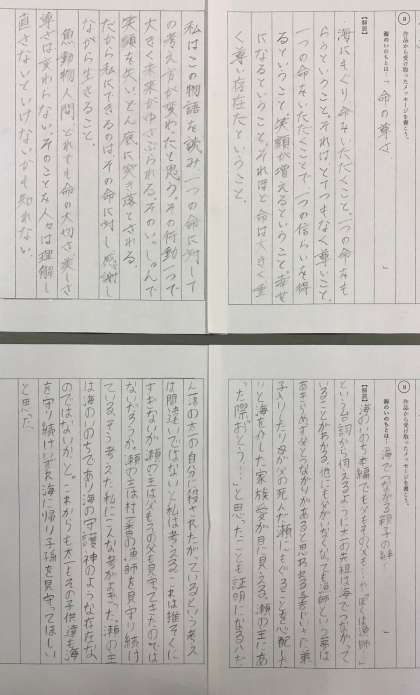 ⑧ 作品から受け取ったメッセージを書こう。
海のいのちとは…「命の尊さ」
【解説】
海にもぐり命をいただくこと。一つの命をも
らうということ。それはとてつもなく尊いこと。
一つの命をいただくことで、一つの信らいを得
るということ。笑顔が増えるということ。幸せ
になるということ。それほど命は大きく重
く尊い存在だということ。
私はこの物語を読み、一つの命に対して
の考え方が変わったと思う。その行動一つで
大きく未来がゆさぶられる。そのい。しゅんで
笑顔を失い、どん底に突き落とされる。
だから私にできるのはその命に対し感謝し
ながら生きること。
魚、動物、人間、どれでも命の大切さ、美しさ、
尊さは変わらない。そのことを人々は理解し
直さないといけないかも知れない。
⑧ 作品から受け取ったメッセージを書こう。
海のいのちとは…「海でつながる親子の絆」
【解説】
海のいのち本編で
という台詞から伺えるように太一の先祖は海でつながって
いることがわかる。他にも父が亡くなっても漁師という夢は
あきらめず父とつながりがあると思われる
子ともしたり母が父の死んだ瀬にもぐることを心配した
りと海を介した家族愛が目に見える。瀬の主にあ
った際「おとう…」と思ったことも証明になるはだ
は間違いではないと私は考える。これは誰そくに
すぎないが瀬の主は父もその父も見守ってきたのでは
ないだろうか。瀬の主は村一番の漁師を見守り続け
ている。そう考えた私にこんな考がよぎった。瀬の主
は海のいのちであり海の守護神のような存在な
のではないかと。これからも太一とその子供達も海
を守り続けいずれ海に帰り子孫を見守ってほしい
と思った。